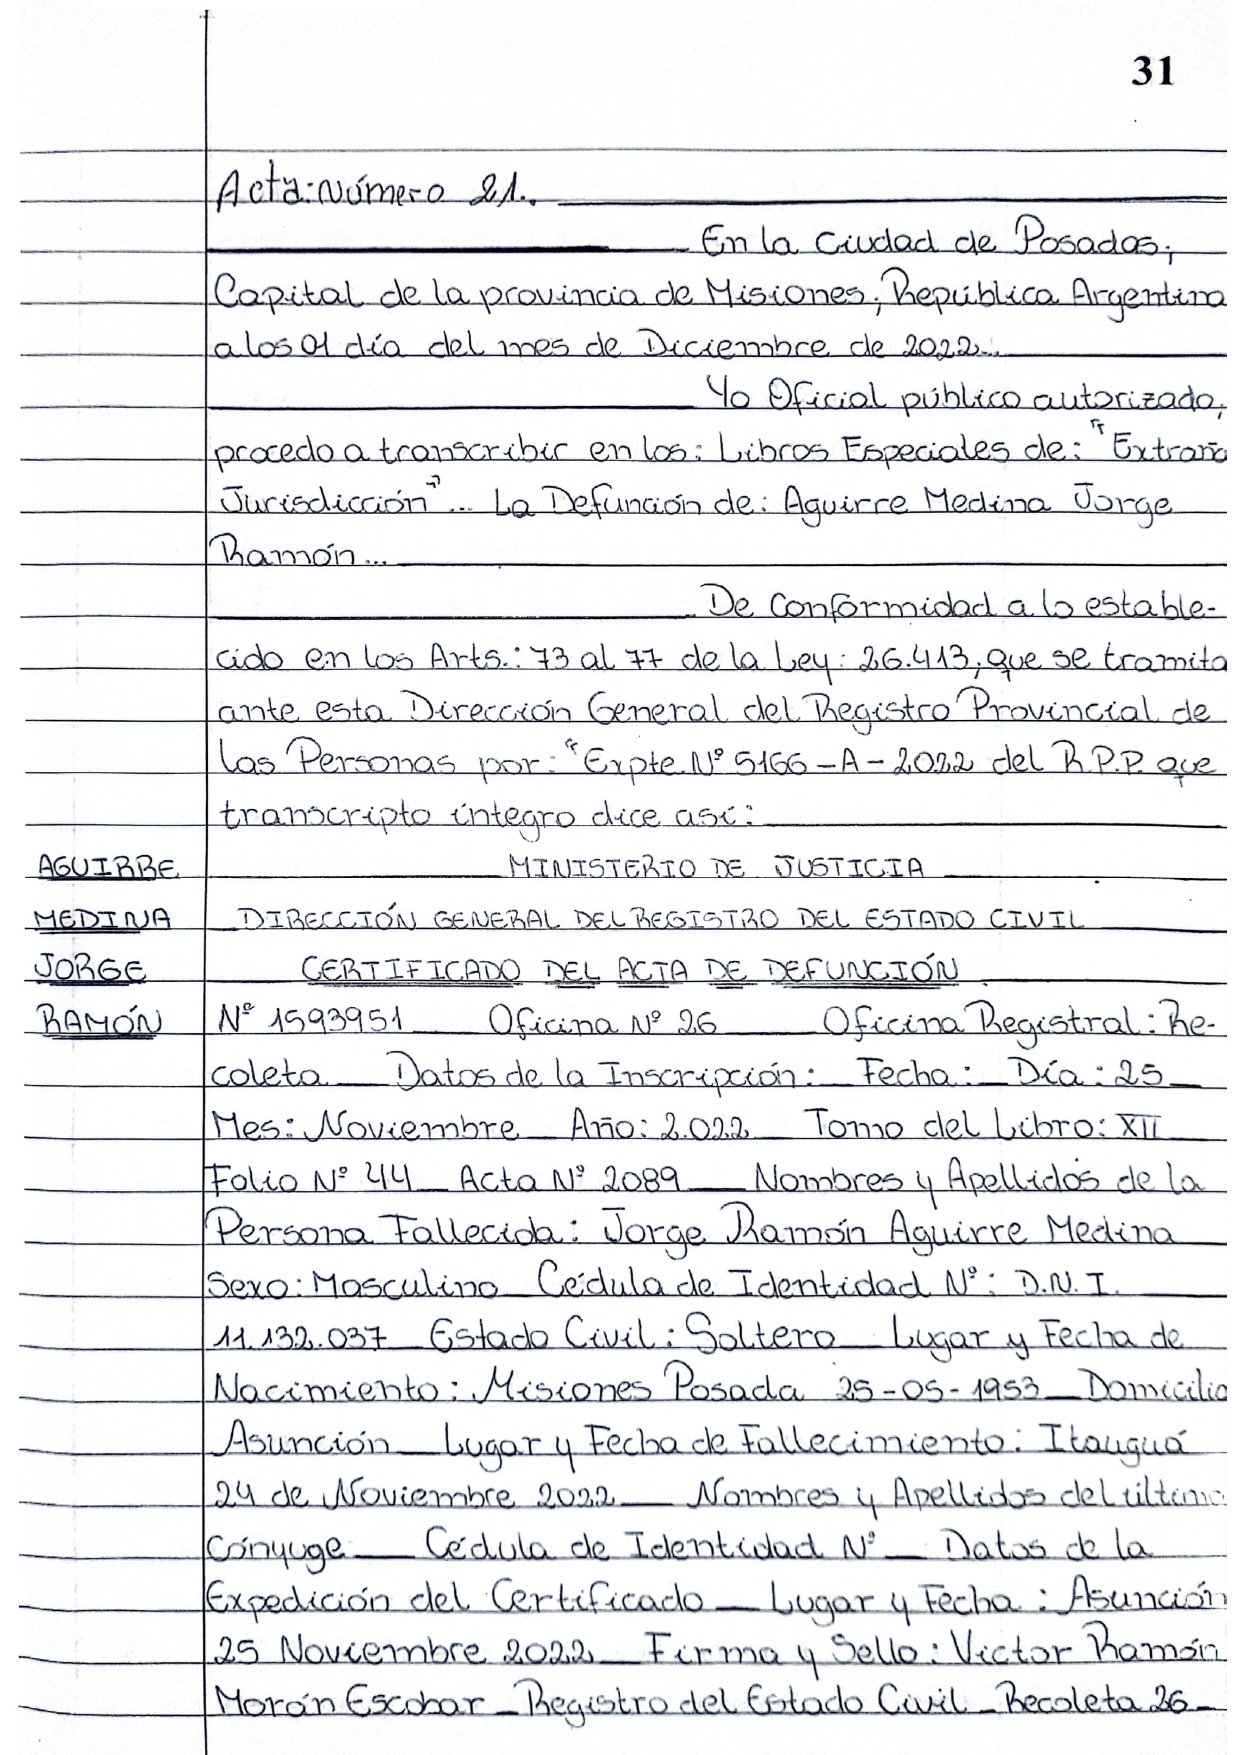 31
Acta: Número 21..
En la Ciudad de Posadas,
Capital de la provincia de Misiones, República Argentina
a los 01 día del mes de Diciembre de 2022...
Yo Oficial público autorizado,
procedo a transcribir en los: Libros Especiales de: "Extraña
Jurisdicción"... La Defunción de: Aguirre Medina Jorge
Ramón...
De Conformidad a lo estable-
cido en los Arts.: 73 al 77 de la Ley: 26.413, que se tramita
ante esta Dirección General del Registro Provincial de
las Personas por: "Expte. Nº 5166-A-2022 del R.P.P. que
transcripto íntegro dice así:
AGUIRRE MINISTERIO DE JUSTICIA
MEDINA DIRECCIÓN GENERAL DEL REGISTRO DEL ESTADO CIVIL
JORGE CERTIFICADO DEL ACTA DE DEFUNCIÓN
RAMÓN Nº 1593951 Oficina Nº 26 Oficina Registral: Re-
coleta Datos de la Inscripción: Fecha: Día: 25
Mes: Noviembre Año: 2.022 Tomo del Libro: XII
Folio Nº 44 Acta Nº 2089 Nombres y Apellidos de la
Persona Fallecida: Jorge Ramón Aguirre Medina
Sexo: Masculino Cédula de Identidad Nº: D.N.I.
11.132.037 Estado Civil: Soltero Lugar y Fecha de
Nacimiento: Misiones Posada 25-05-1953 Domicilio
Asunción Lugar y Fecha de Fallecimiento: Itauguá
24 de Noviembre 2022 Nombres y Apellidos del último
Cónyuge Cédula de Identidad Nº Datos de la
Expedición del Certificado Lugar y Fecha: Asunción
25 Noviembre 2022 Firma y Sello: Victor Ramón
Morán Escobar - Registro del Estado Civil - Recoleta 26 -